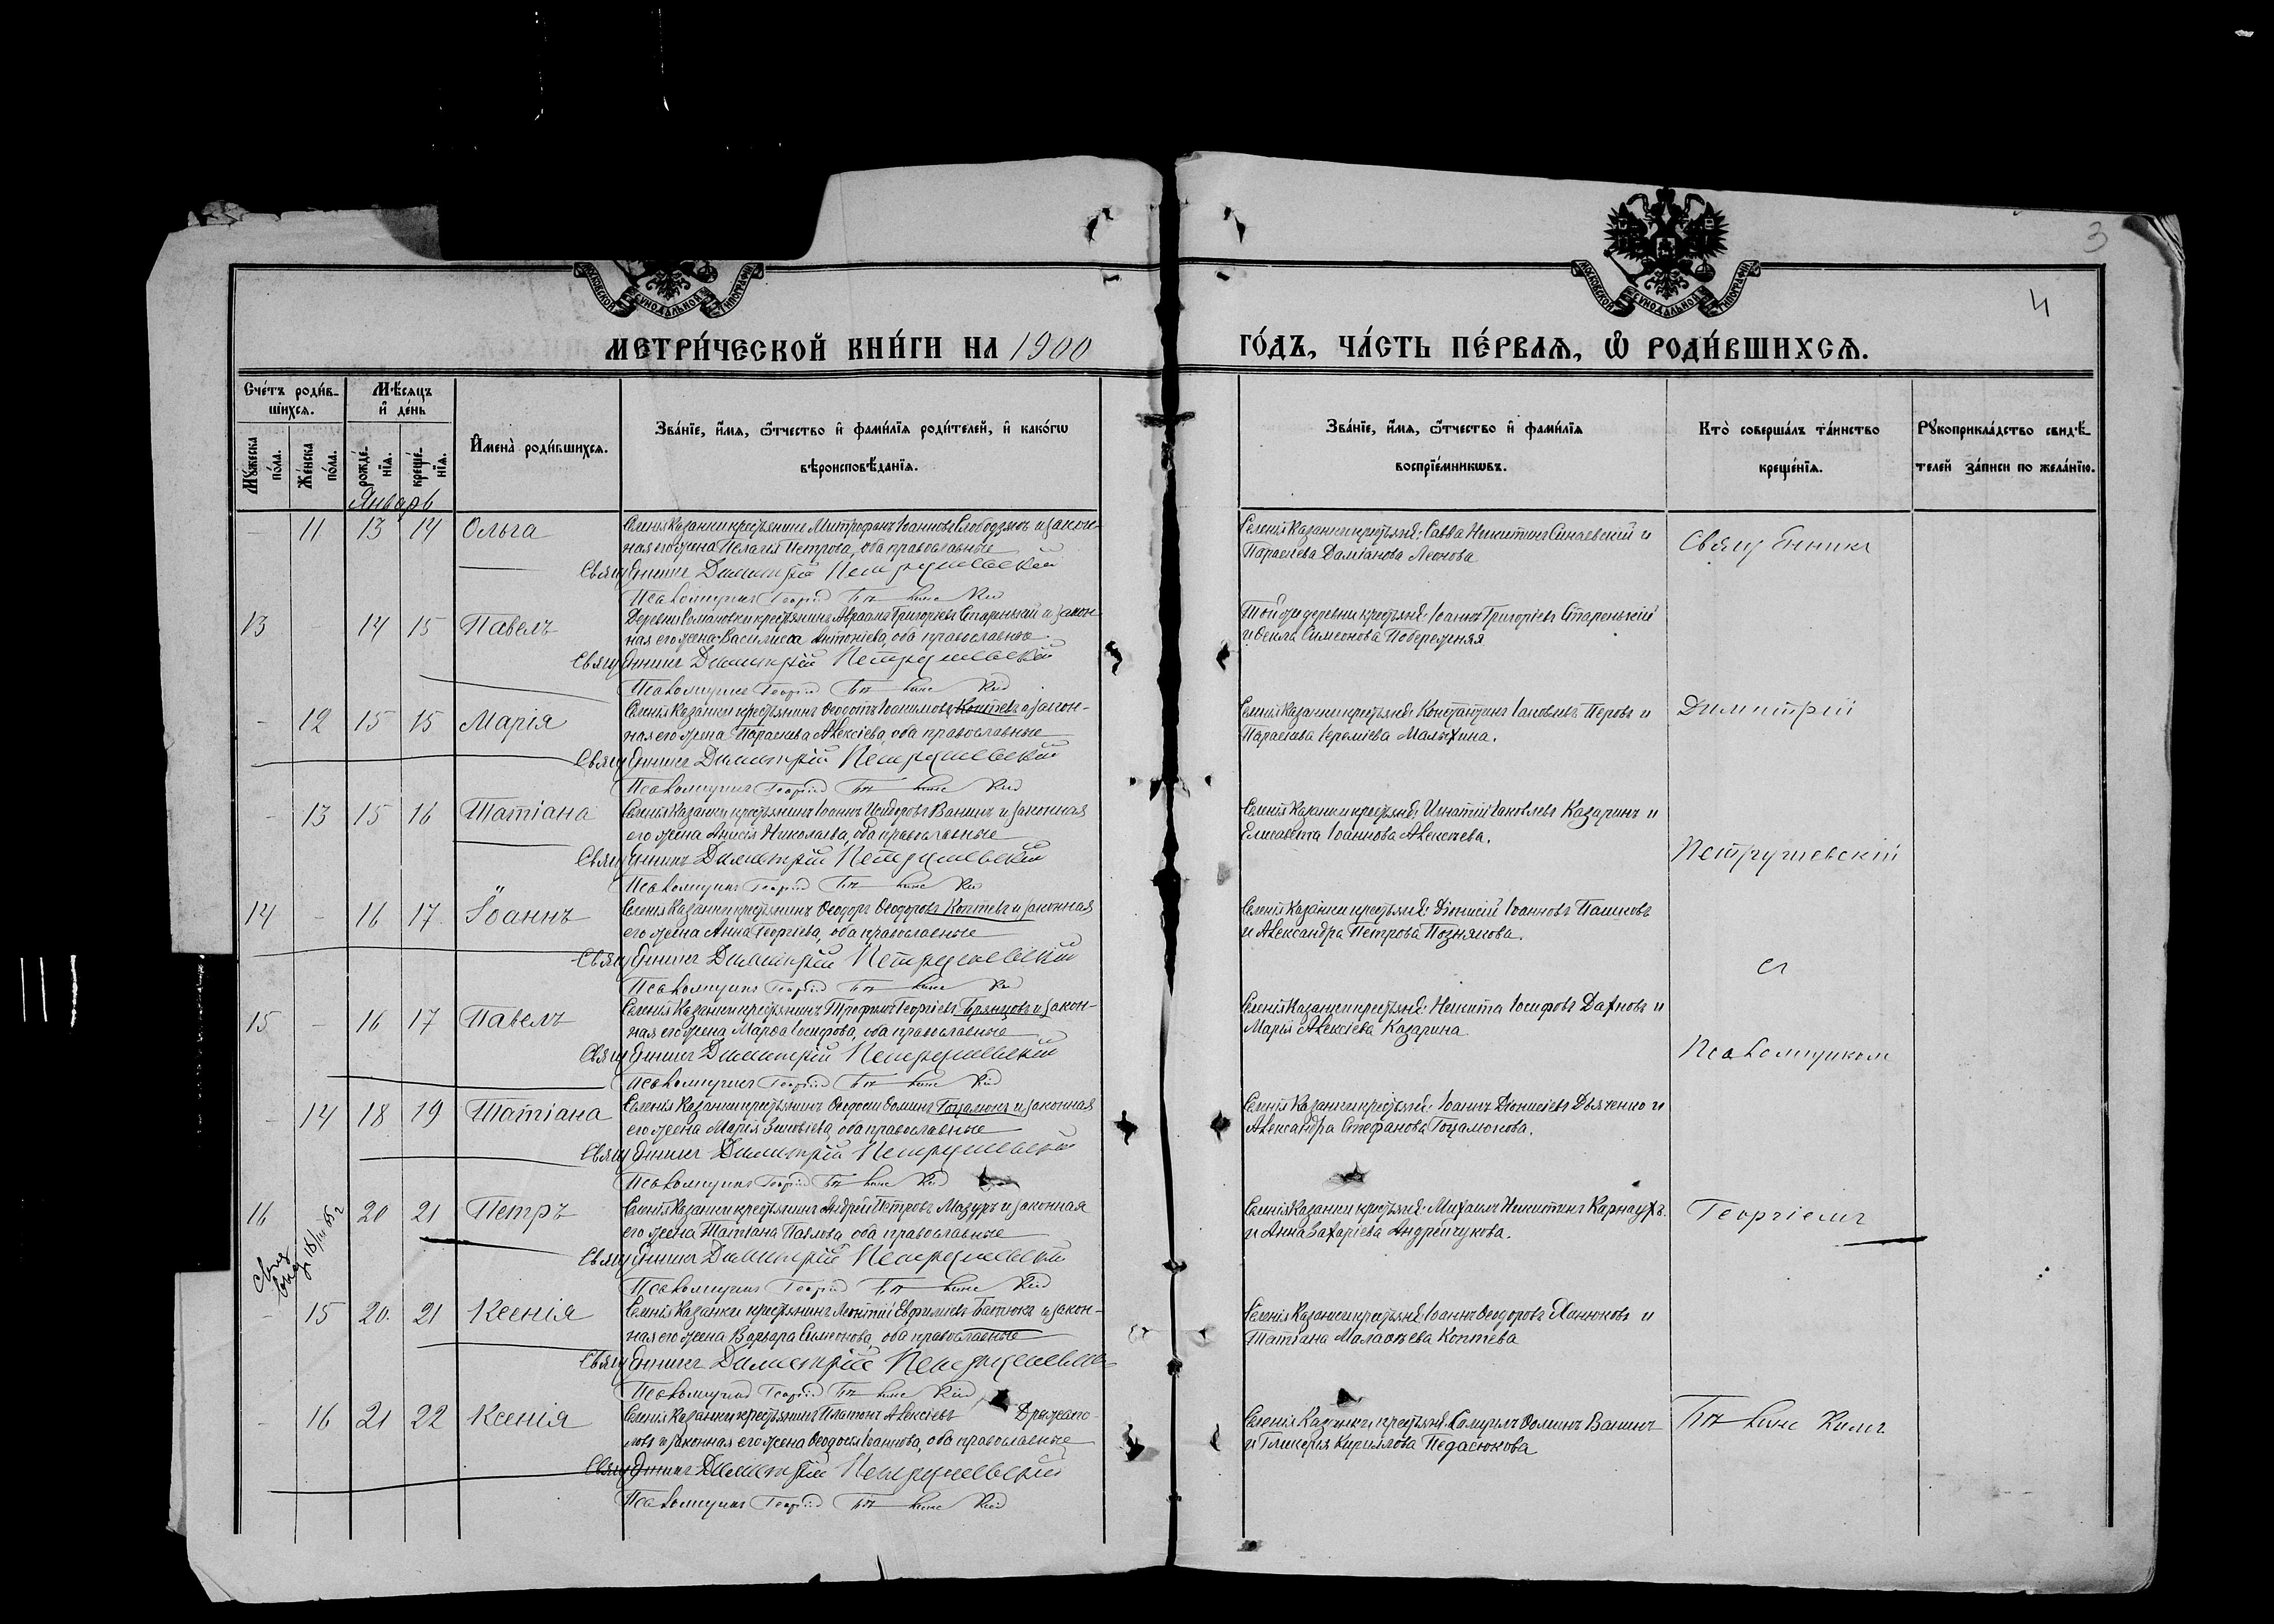 3
4
МОСКОВСКОЙ СѴНОДАЛЬНОЙ ТИПОГРАФІИ
МОСКОВСКОЙ СѴНОДАЛЬНОЙ ТИПОГРАФІИ
МЕТРИ́ЧЕСКОЙ КНИ́ГИ НА 1900
ГО́ДЪ, ЧА́СТЬ ПЕ́РВАѦ, Ѡ҆ РОДИ́ВШИХСѦ.
Сче́тъ роди́в-
шихсѧ.
Мѣ́сѧцъ
и҆ де́нь
Мꙋ́жеска по́ла.
Же́нска по́ла.
рожде́-нїѧ.
креще́-нїѧ.
Январь
И҆мена̀ роди́вшихсѧ.
Зва́нїе, и҆́мѧ, ѻ҆́тчество и҆ фами́лїѧ роди́телей, и҆ како́гѡ
вѣроисповѣ́данїѧ.
Зва́нїе, и҆́мѧ, ѻ҆́тчество и҆ фами́лїѧ
воспрїе́мникѡвъ.
Кто̀ соверша́лъ та́инство
креще́нїѧ.
Рꙋкоприкла́дство свидѣ́-
телей за́писи по жела́нїю.
- 11 13 14 Ольга
Селенія Казанки крестьянинъ Митрофанъ Іоанновъ Слободзянъ и закон-
ная его жена Пелагія Петрова, оба православные
Священникъ Димитрій Петрушевскій
Псаломщикъ Георгій
Селенія Казанки крестьяне: Савва Никитинъ Синаевскій и
Параскева Даміанова Леонова
Священникъ
13 - 14 15 Павелъ
Деревни Романовки крестьянинъ Авраамъ Григорьевъ Старенькій и закон-
ная его жена Василисса Антоніева, оба православные
Священникъ Димитрій Петрушевскій
Псаломщикъ Георгій
Той же деревни крестьяне: Іоаннъ Григоріевъ Старенькій
и Ѳекла Симеонова Побережняя
- 12 15 15 Марія
Селенія Казанки крестьянинъ Ѳеодотъ Іоакимовъ Коптевъ и закон-
ная его жена Параскева Алексіева, оба православные
Священникъ Димитрій Петрушевскій
Псаломщикъ Георгій
Селенія Казанки крестьяне: Константинъ Іаковлевъ Перовъ и
Параскева Іереміева Малыхина.
Димитрій
- 13 15 16 Татіана
Селенія Казанки крестьянинъ Іоаннъ Исидоровъ Ванинъ и законная
его жена Анисія Николаева, оба православные
Священникъ Димитрій Петрушевскій
Псаломщикъ Георгій
Селенія Казанки крестьяне: Игнатій Іаковлевъ Казаринъ и
Елисавета Іоаннова Алексѣева.
Петрушевскій
14 - 16 17 Іоаннъ
Селенія Казанки крестьянинъ Ѳеодоръ Ѳеодоровъ Коптевъ и законная
его жена Анна Георгіева, оба православные
Священникъ Димитрій Петрушевскій
Псаломщикъ Георгій
Селенія Казанки крестьяне: Діонисій Іоанновъ Пашковъ
и Александра Петрова Познякова.
съ
15 - 16 17 Павелъ
Селенія Казанки крестьянинъ Трофимъ Георгіевъ Брянцовъ и закон-
ная его жена Марѳа Іосифова, оба православные
Священникъ Димитрій Петрушевскій
Псаломщикъ Георгій
Селенія Казанки крестьяне: Никита Іосифовъ Дахновъ и
Марія Алексіева Казарина
Псаломщикомъ
- 14 18 19 Татіана
Селенія Казанки крестьянинъ Ѳеодосій Ѳоминъ Гоцамонъ и законная
его жена Марія Зиновіева, оба православные
Священникъ Димитрій Петрушевскій
Псаломщикъ Георгій
Селенія Казанки крестьяне: Іоаннъ Діонисіевъ Дьяченко и
Александра Стефанова Гоцамонова.
16 20 21 Петръ
Селенія Казанки крестьянинъ Андрей Петровъ Мазуръ и законная
его жена Татіана Павлова, оба православные
Священникъ Димитрій Петрушевскій
Псаломщикъ Георгій
Селенія Казанки крестьяне: Михаилъ Никитинъ Карнаухъ
и Анна Захаріева Андрейчукова.
Георгіемъ
- 15 20. 21 Ксенія
Селенія Казанки крестьянинъ Леонтій Евфиміевъ Батюкъ и закон-
ная его жена Варвара Симеонова, оба православные
Священникъ Димитрій Петрушевскій
Псаломщикъ Георгій
Селенія Казанки крестьяне: Іоаннъ Ѳеодоровъ Ханюковъ и
Татіана Малаѳіева Коптева
- 16 21 22 Ксенія
Селенія Казанки крестьянинъ Платонъ Алексіевъ
и законная его жена Ѳеодосія Іоаннова, оба православные
Священникъ Димитрій Петрушевскій
Псаломщикъ Георгій
Селенія Казанки крестьяне: Самуилъ Ѳоминъ Ванинъ
и Гликерія Кириллова Педасюкова